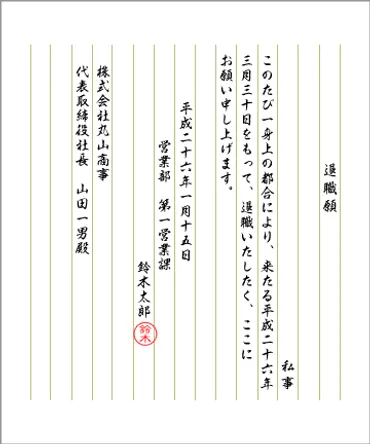 退職願
私事
このたび一身上の都合により、来たる平成二十六年
三月三十日をもって、退職いたしたく、ここに
お願い申し上げます。
平成二十六年一月十五日
営業部　第一営業課
鈴木太郎
鈴木
株式会社丸山商事
代表取締役社長　山田一男殿